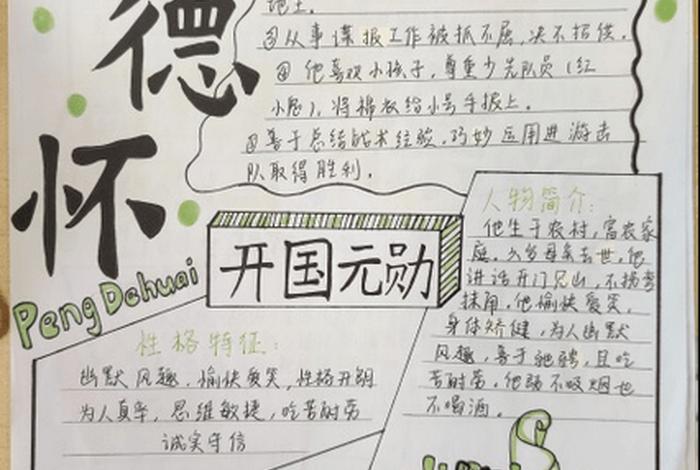 德
怀
Peng Dehuai
地主。
③从事谍报工作被抓不屈,决不招供。
④他喜欢小孩子,尊重少先队员(红
小鬼),将棉衣给小号手披上。
⑤善于总结战术经验,巧妙运用进游击
队取得胜利。
开国元勋
人物简介:
他生于农村,富农家
庭。六岁母亲去世,他
讲话开门见山,不拐弯
抹角,他愉快爱笑,
身体矫健,为人幽默
风趣,善于驰骋,且吃
苦耐劳,他既不吸烟也
不喝酒。
性格特征:
幽默风趣、愉快爱笑,性格开朗
为人真率,思维敏捷,吃苦耐劳
诚实守信